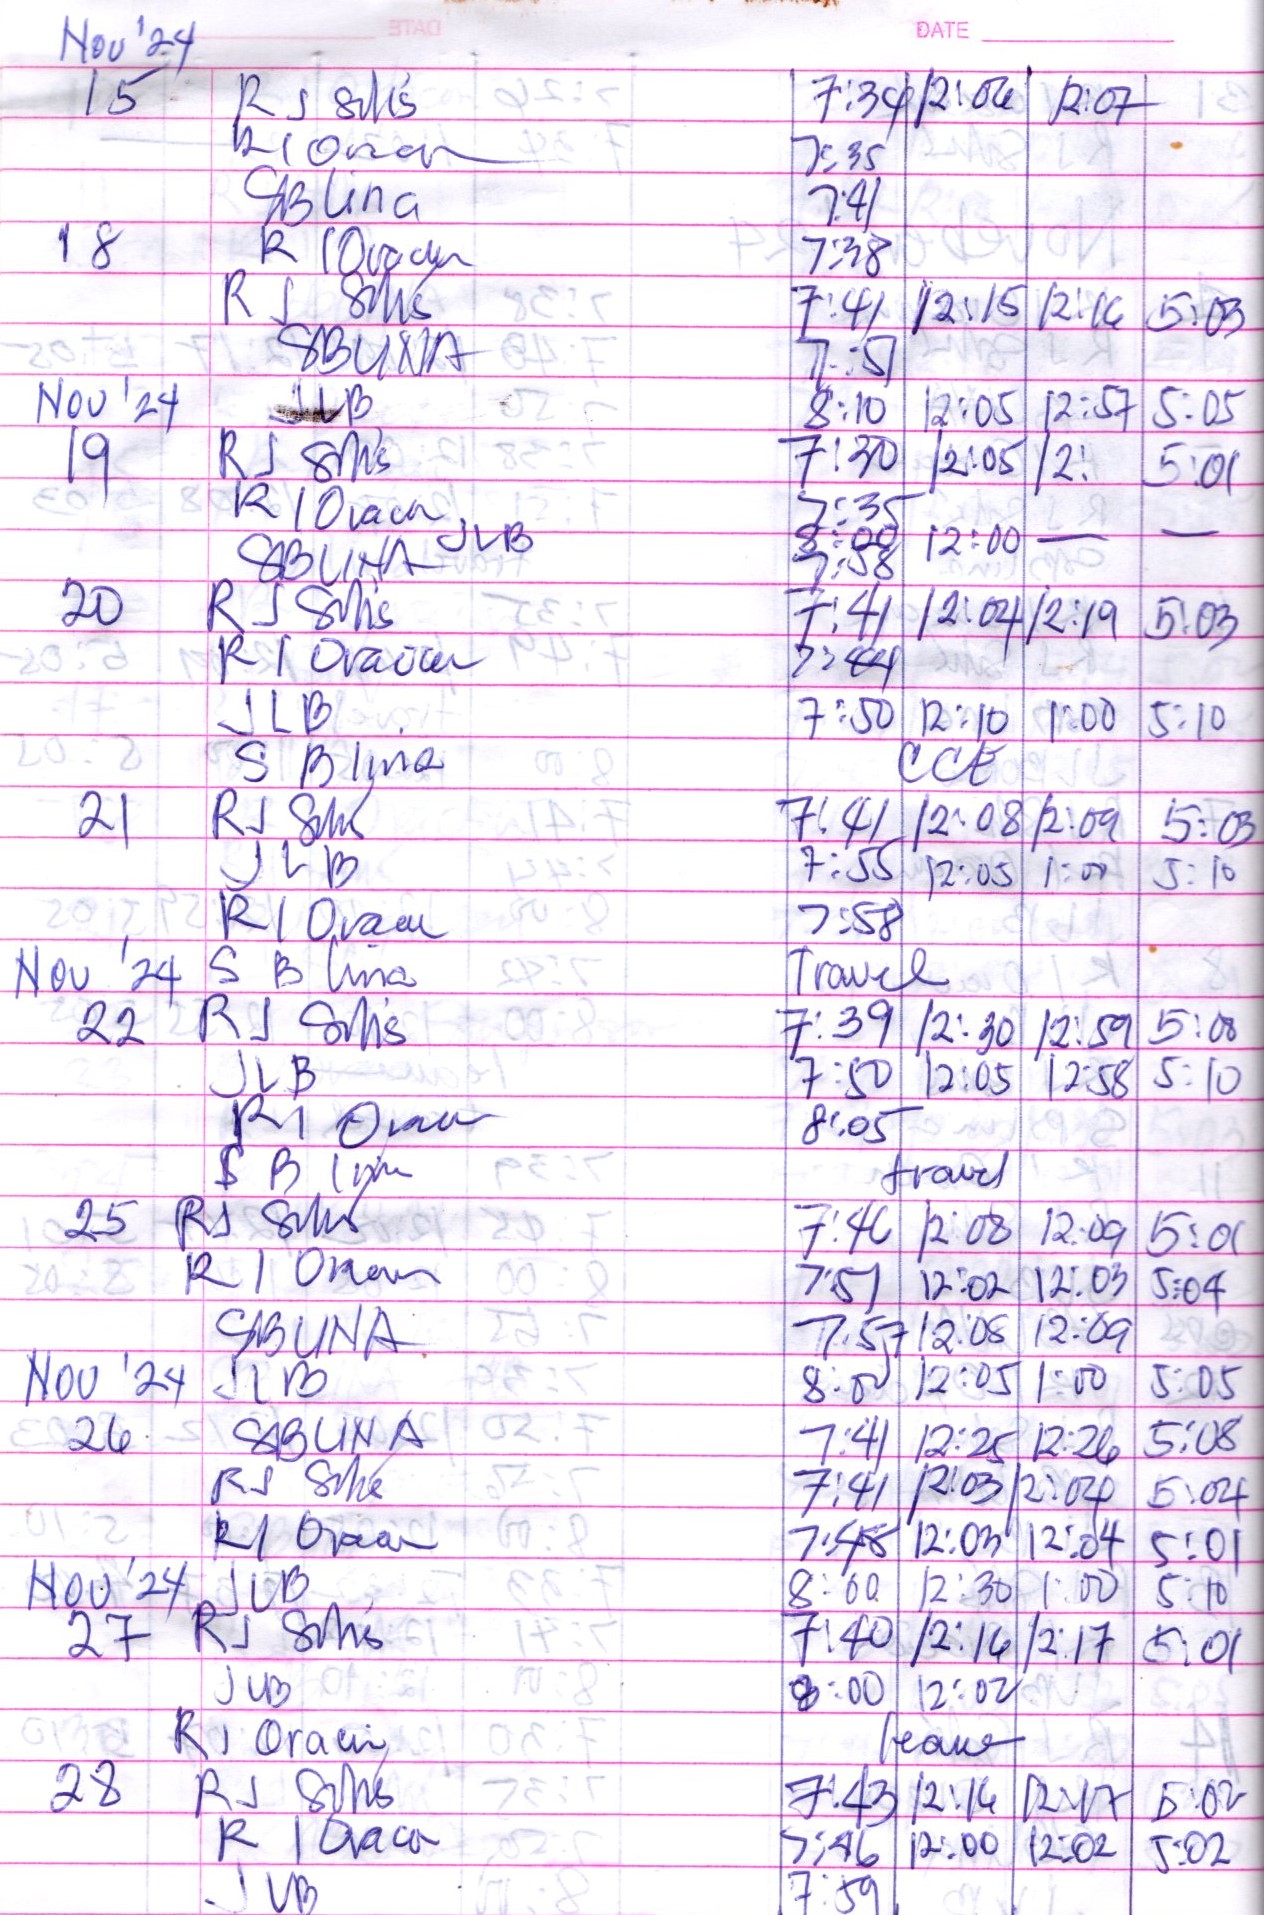 DATE
Nov '24
15 R J Solis 7:34 12:06 12:07
R I Oracion 7:35
SB Lina 7:41
18 R I Oracion 7:38
R J Solis 7:41 12:15 12:16 5:03
SB LINA 7:51
Nov '24 JLB 8:10 12:05 12:57 5:05
19 R J Solis 7:30 12:05 12: 5:01
R I Oracion 7:35
JLB 8:00 12:00 — —
SB LINA 7:58
20 R J Solis 7:41 12:04 12:19 5:03
R I Oracion 7:44
JLB 7:50 12:10 1:00 5:10
S B Lina CCE
21 R J Solis 7:41 12:08 12:09 5:03
JLB 7:55 12:05 1:00 5:10
R I Oracion 7:58
Nov '24 S B Lina Travel
22 R J Solis 7:39 12:30 12:59 5:08
JLB 7:50 12:05 12:58 5:10
R I Oracion 8:05
S B Lina travel
25 R J Solis 7:46 12:08 12:09 5:01
R I Oracion 7:51 12:02 12:03 5:04
SB LINA 7:57 12:08 12:09
Nov '24 JLB 8:00 12:05 1:00 5:05
26 SB LINA 7:41 12:25 12:26 5:08
R J Solis 7:41 12:03 12:04 5:04
R I Oracion 7:48 12:03 12:04 5:01
Nov '24 JLB 8:00 12:30 1:00 5:10
27 R J Solis 7:40 12:16 12:17 5:01
JLB 8:00 12:02
R I Oracion leave
28 R J Solis 7:43 12:16 12:17 5:02
R I Oracion 7:46 12:00 12:02 5:02
JLB 7:59